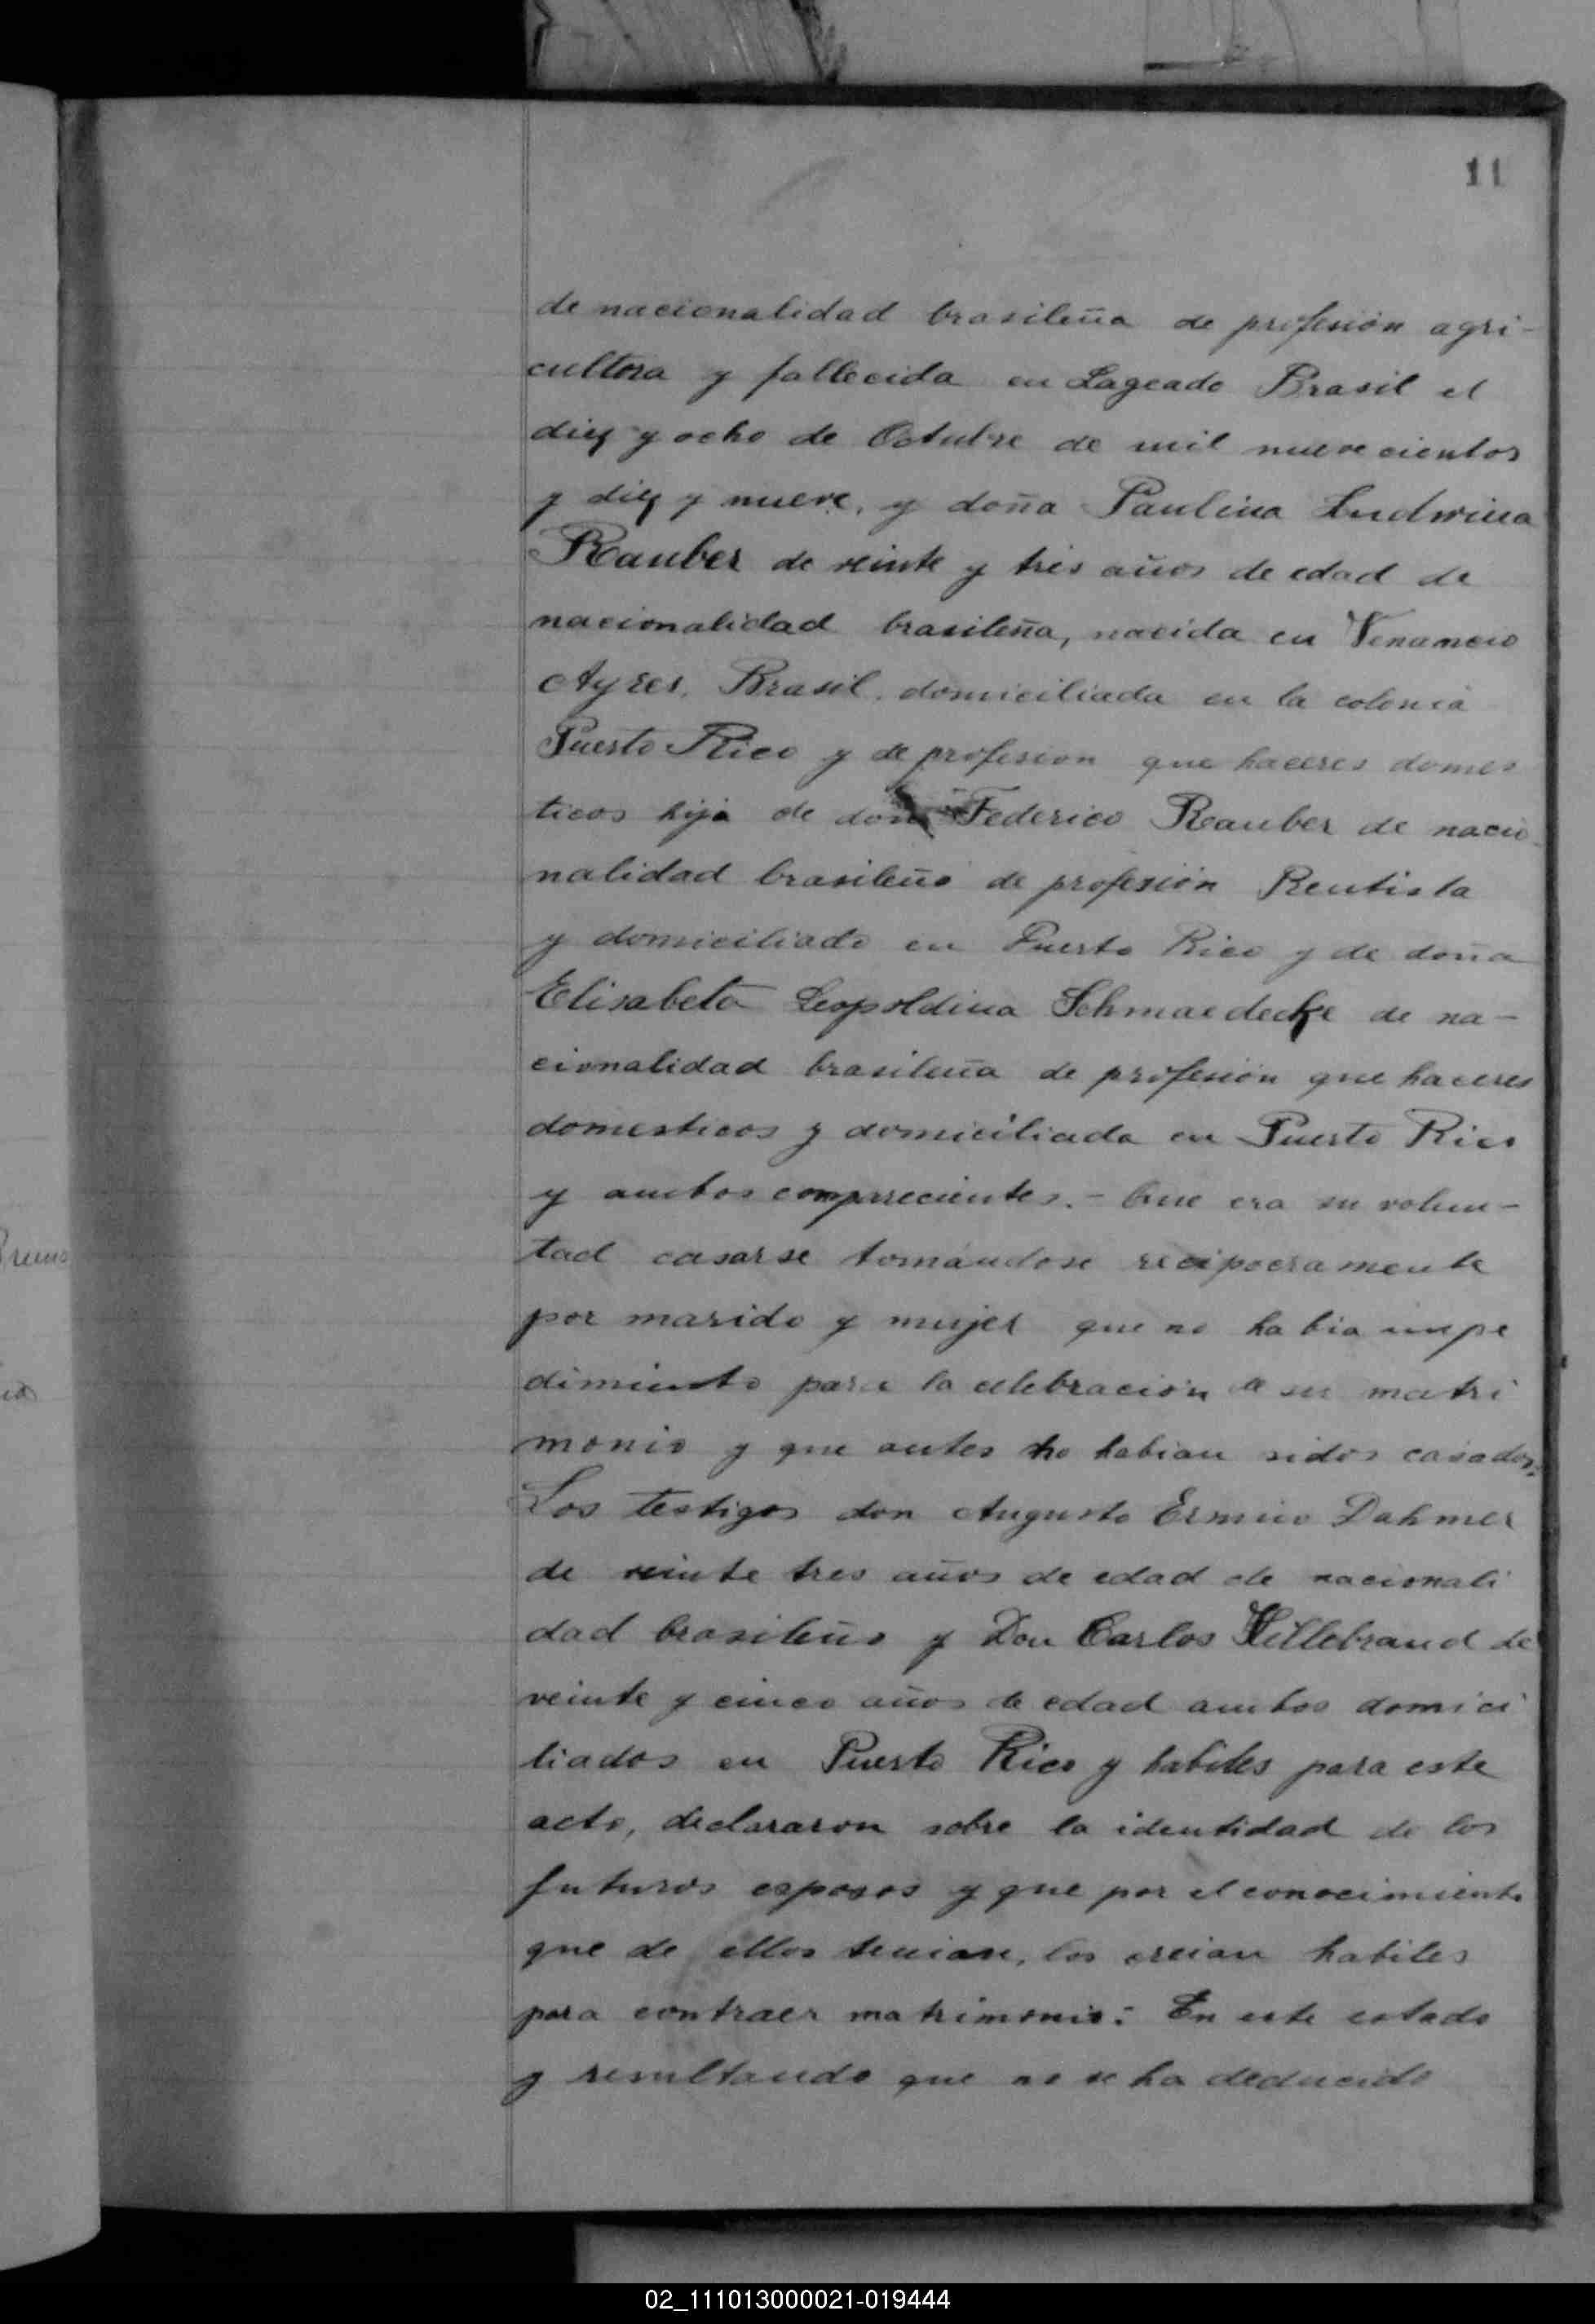 11
de nacionalidad brasileña de profesión agri-
cultora y fallecida en Lageado Brasil el
diez y ocho de Octubre de mil nuevecientos
y diez y nueve, y doña Paulina Ludwina
Rauber de veinte y tres años de edad de
nacionalidad brasileña, nacida en Venancio
Ayres, Brasil, domiciliada en la colonia
Puerto Rico y de profesion que haceres domes
ticos hija de don Federico Rauber de nacio
nalidad brasileño de profesión Rentista
y domiciliado en Puerto Rico y de doña
Elisabeta Leopoldina Schmaedecke de na-
cionalidad brasileña de profesión que haceres
domesticos y domiciliada en Puerto Rico
y ambos comparecientes.- Que era su volun-
tad casarse tomándose recipocramente
por marido y mujer que no habia impe
dimiento para la celebración de su matri
monio y que antes no habian sidos casados.-
Los testigos don Augusto Ermino Dahmer
de veinte tres años de edad de nacionali
dad brasileño y Don Carlos Hillebrand de
veinte y cinco años de edad ambos domici
liados en Puerto Rico y habiles para este
acto, declararon sobre la identidad de los
futuros esposos y que por el conocimiento
que de ellos tenian, los creian habiles
para contraer matrimonio: En este estado
y resultando que no se ha deducido
02_111013000021-019444